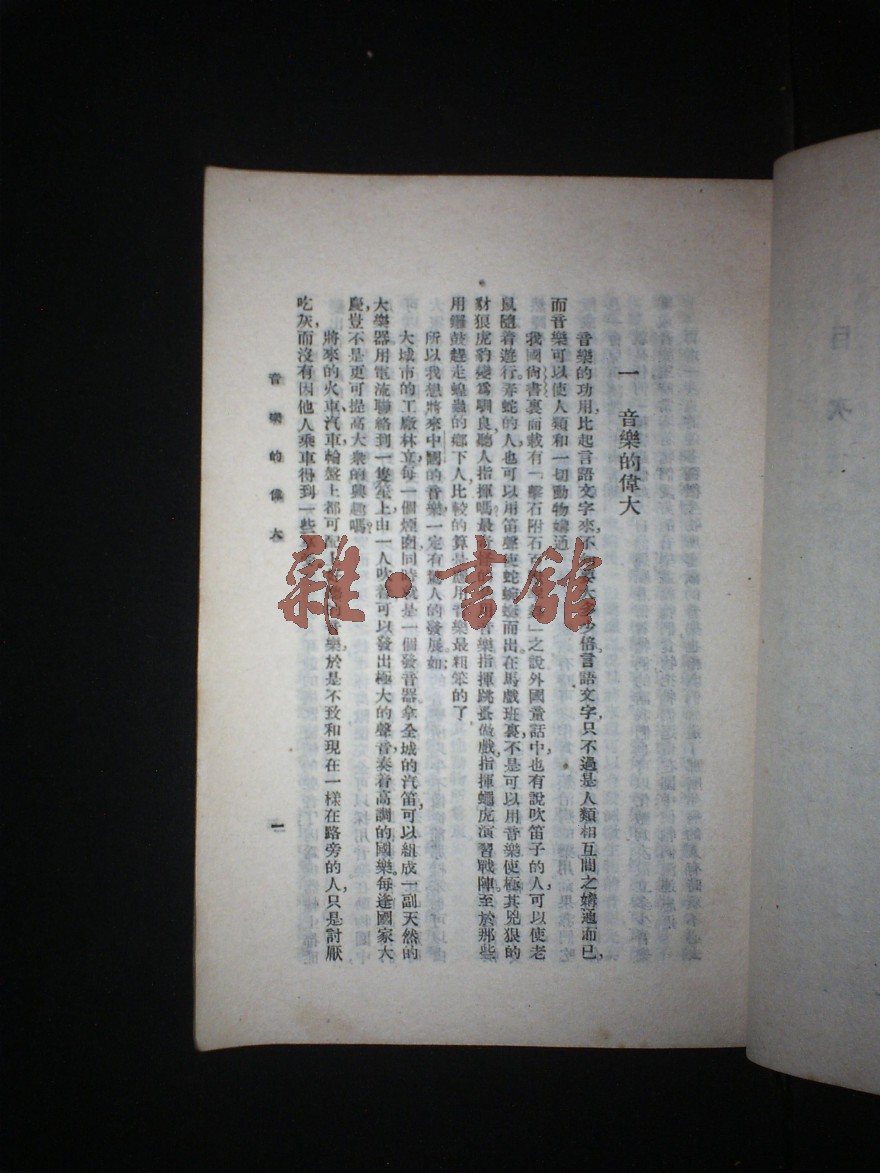 一　音樂的偉大
音樂的功用比起言語文字來，不多少倍言語文字只不過是人類相互間之媾通而已，
而音樂可以使人類和一切動物媾通。
我國尙書裏面載有「擊石附石百」之說外國童話中也有說吹笛子的人可以使老
鼠隨着遊行弄蛇的人也可以用笛聲使蛇蜿蜒而出在馬戲班裏不是可以用音樂使極其兇狠的
豺狼虎豹變爲馴良聽人指揮嗎最音樂指揮跳蚤做戲，指揮蠅虎演習戰陣。至於那些
用鑼鼓趕走蝗蟲的鄉下人比較的算是應用音樂最粗笨的了。
所以我想將來中國的音樂一定有驚人的發展如：
大城市的工廠林立每一個煙囱同時就是一個發音器拿全城的汽笛可以組成一副天然的
大樂器用電流聯絡到一隻笙上由一人吹着可以發出極大的聲音，奏着高調的國樂每逢國家大
慶豈不是更可提高大衆的興趣嗎。
將來的火車、汽車輪盤上都可配上音樂於是不致和現在一樣在路旁的人，只是討厭
吃灰，而沒有因他人乘車得到一些
音樂的偉大
一
目次
雜·書館